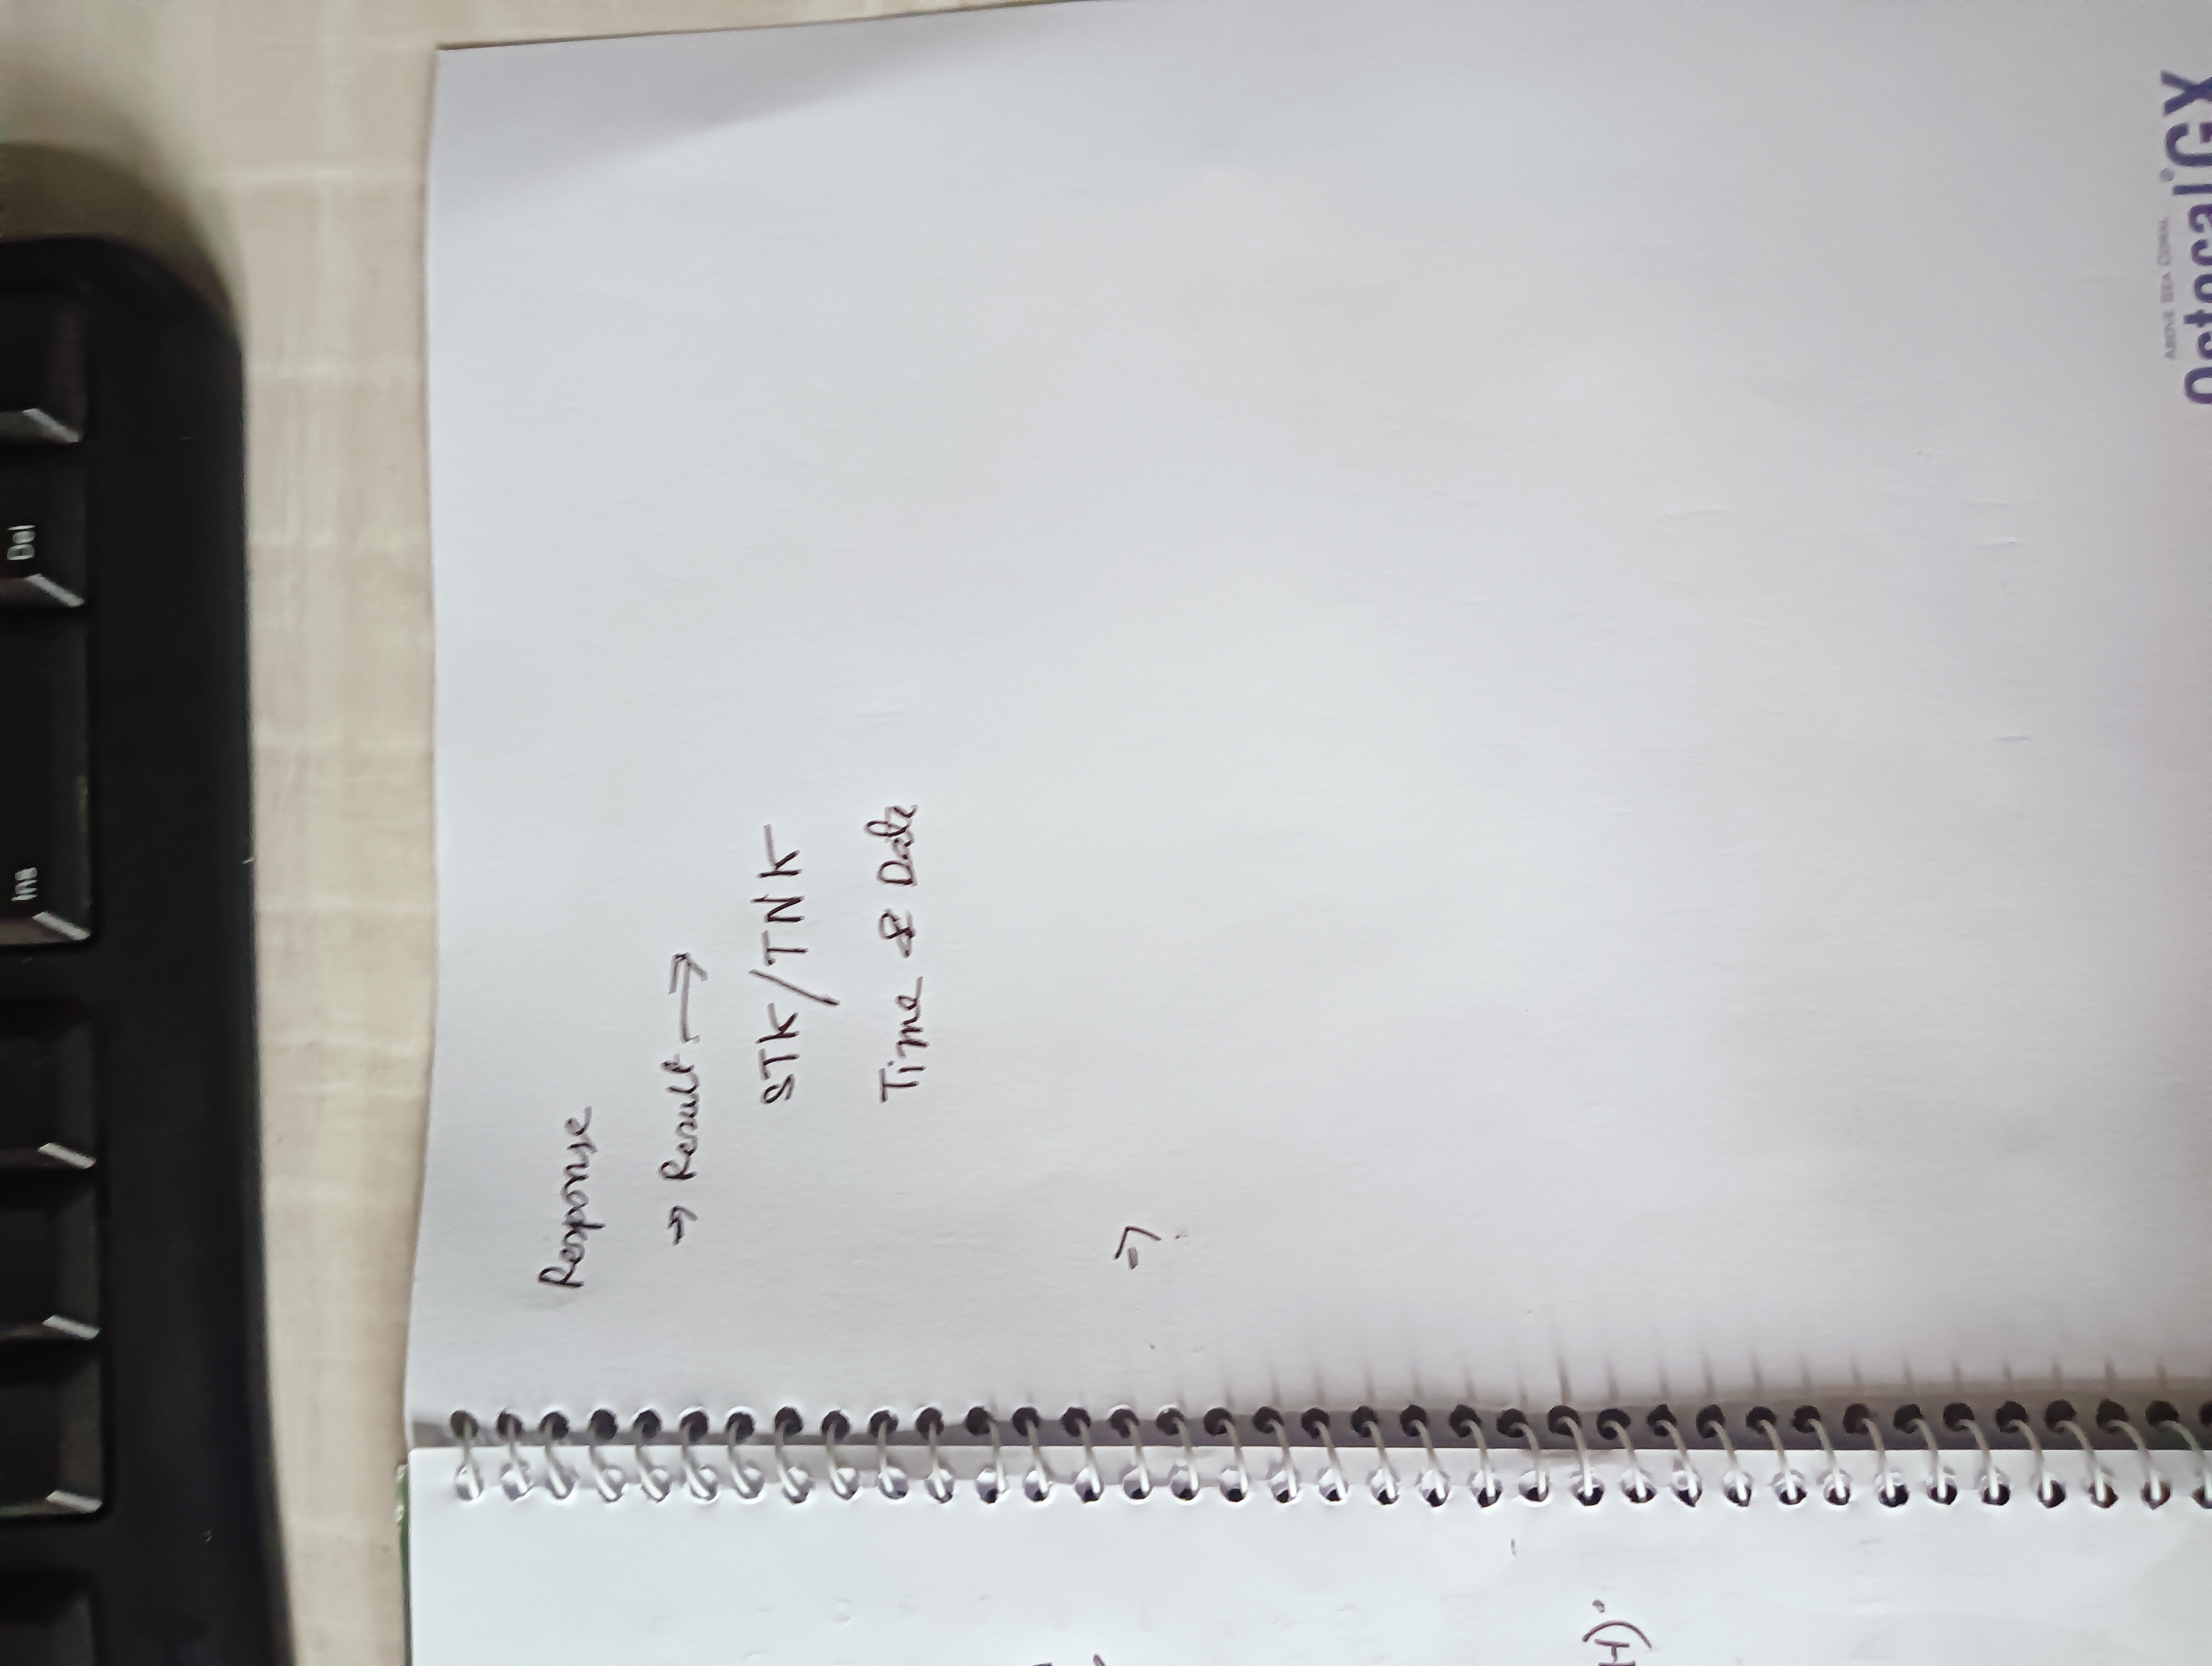 Ins Del
Response
→ Result →
STK/TNK
Time & Date
→
H)
ABOVE SEA CORAL
Ostocal GX